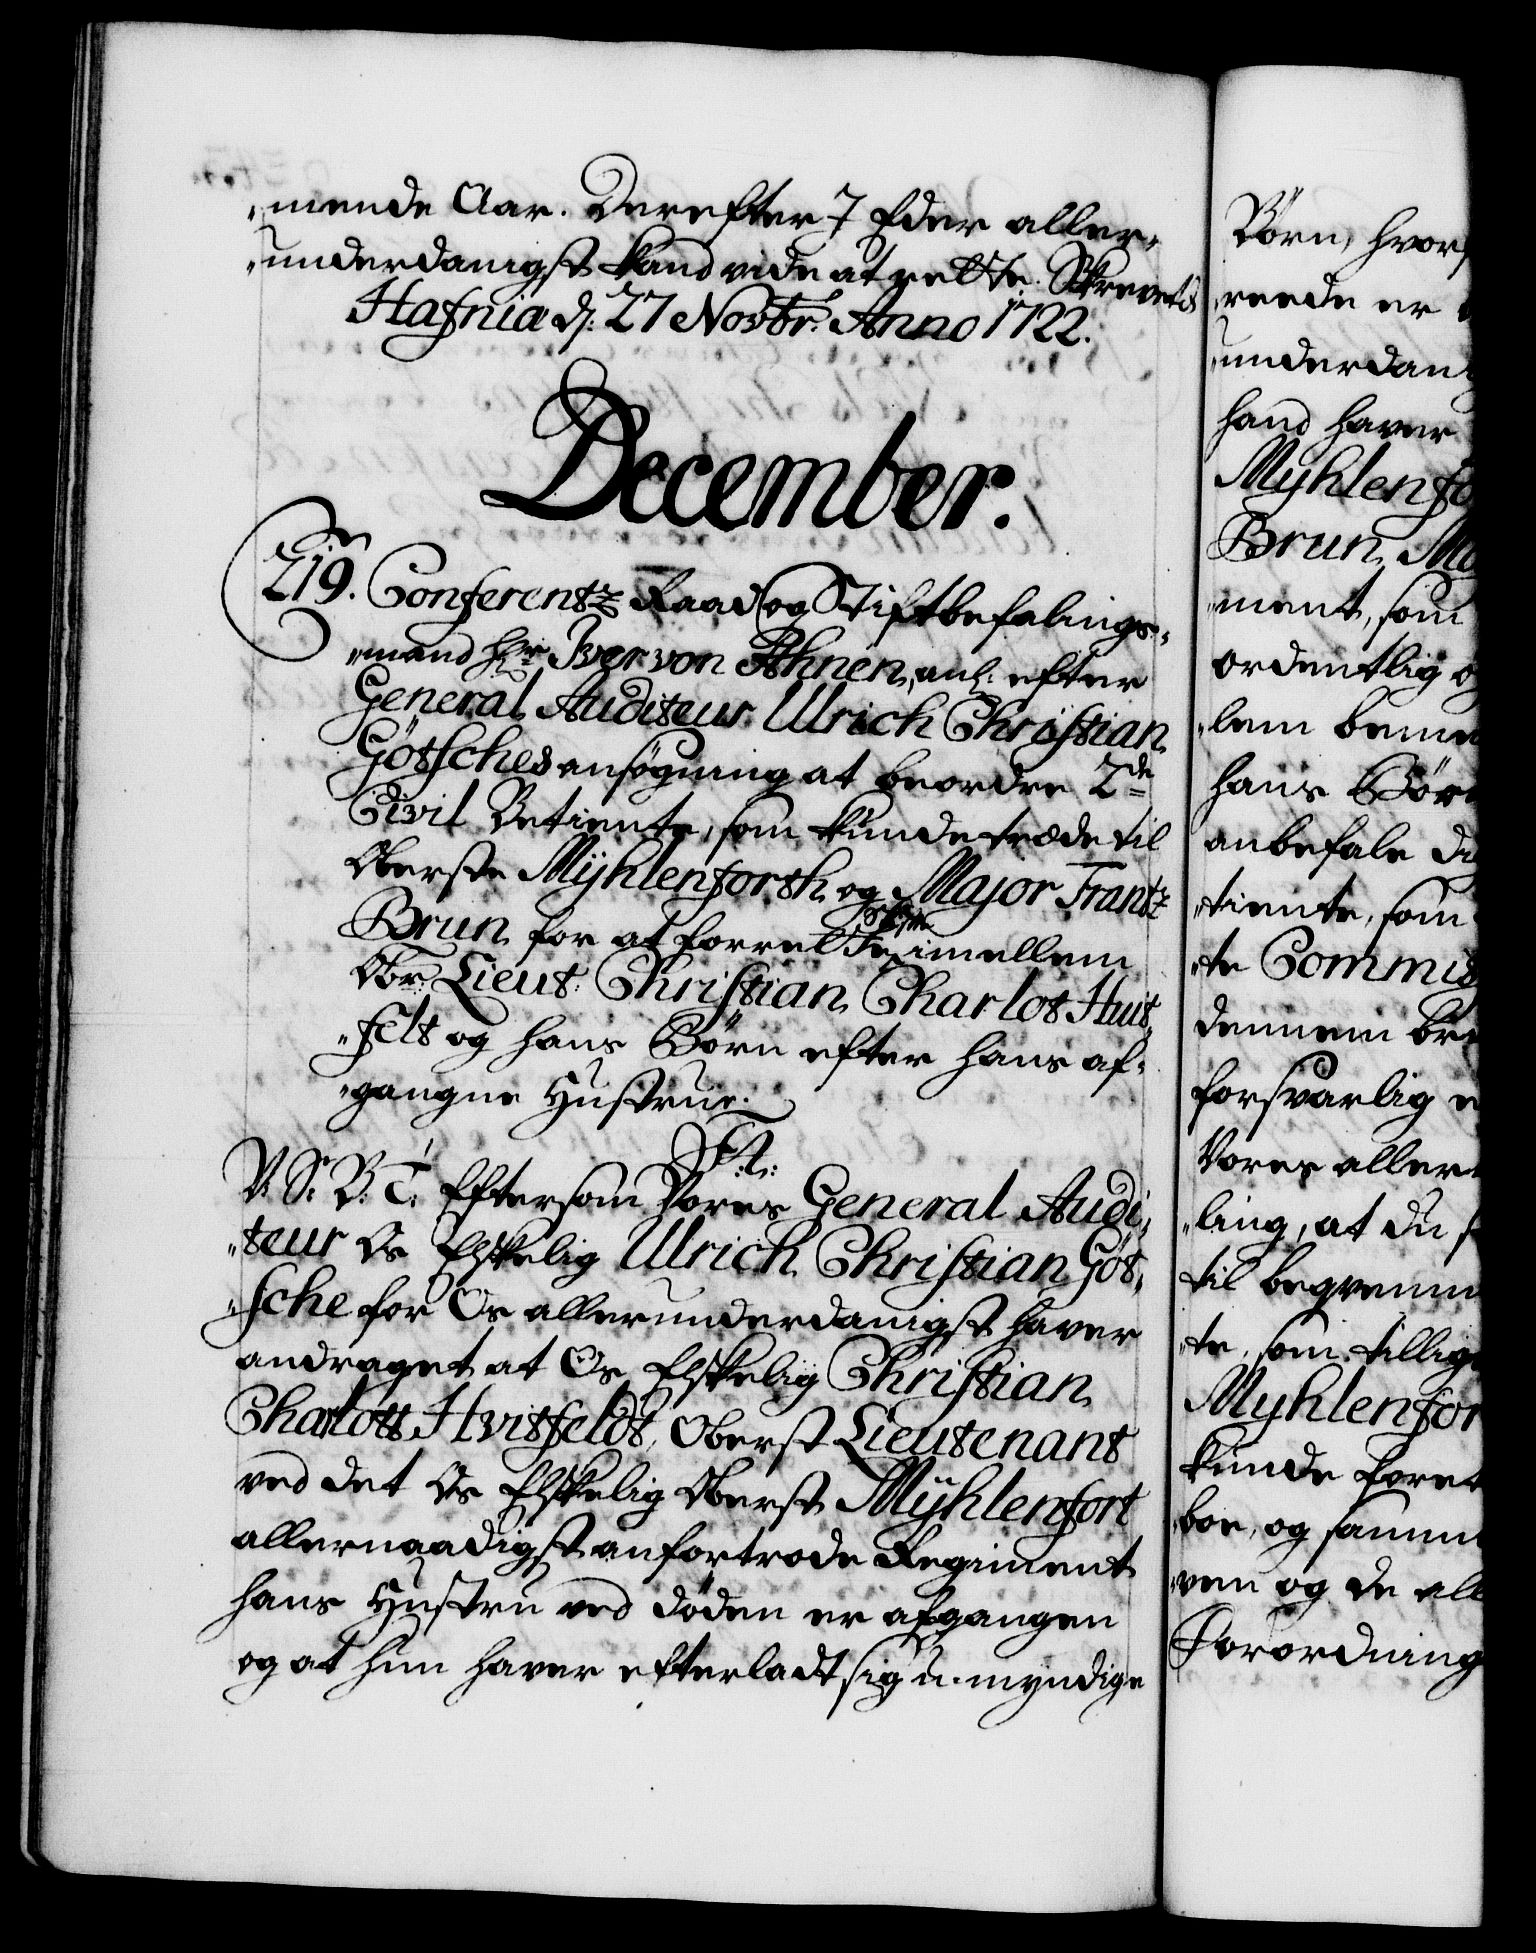 „mende Aar. Derefter I Eder aller„
„underdanigst kand vide at rette. Skrevet
Hafniæ d: 27 Novbr. Anno 1722.
December.
219. Conferentz Raad og Stiftbefalings„
„mand Hr Iver von Ahnen, anl: efter
General Auditeur Ulrich Christian
Götsches ansögning at beordre 2de
Civil Betiente, som kunde træde til
Oberste Mÿhlenforth og Major Frantz
Brun for at forrette Skifte imellem
Obr: Lieut: Christian Charlot Huit„
„felt og hans Börn efter hans af„
„gangne Hustrue.
F: 4:
V: S: B: T: Eftersom Vores General Audi„
„teur Os Elskelig Ulrich Christian Göt„
„sche for Os allerunderdanigst haver
andraget at Os Elskelig Christian
Charlott Hvitfeldt, Oberst Lieutenant
ved det Os Elskelig Oberst Mÿhlenfort
allernaadigst anfortrode Regiment
hans Hustru ved döden er afgangen
og at hun haver efterladt sig u-myndige
Börn, hvor
reede er
underdan
hand haver
Myhlenfo
Brun, Ma
„ment, som
ordentlig o
„lem bem
hans Bör
anbefale di
„tiente, som
„te Commis
dennem br
forsvarlig
Vores aller
„ling, at du
til beqvem
„te, som tillig
Myhlenfor
kunde foret
boe, og samm
„ven og de all
Forordning